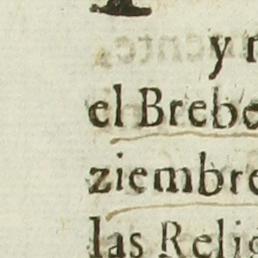 y
el Brebe
ziembre
las Relig